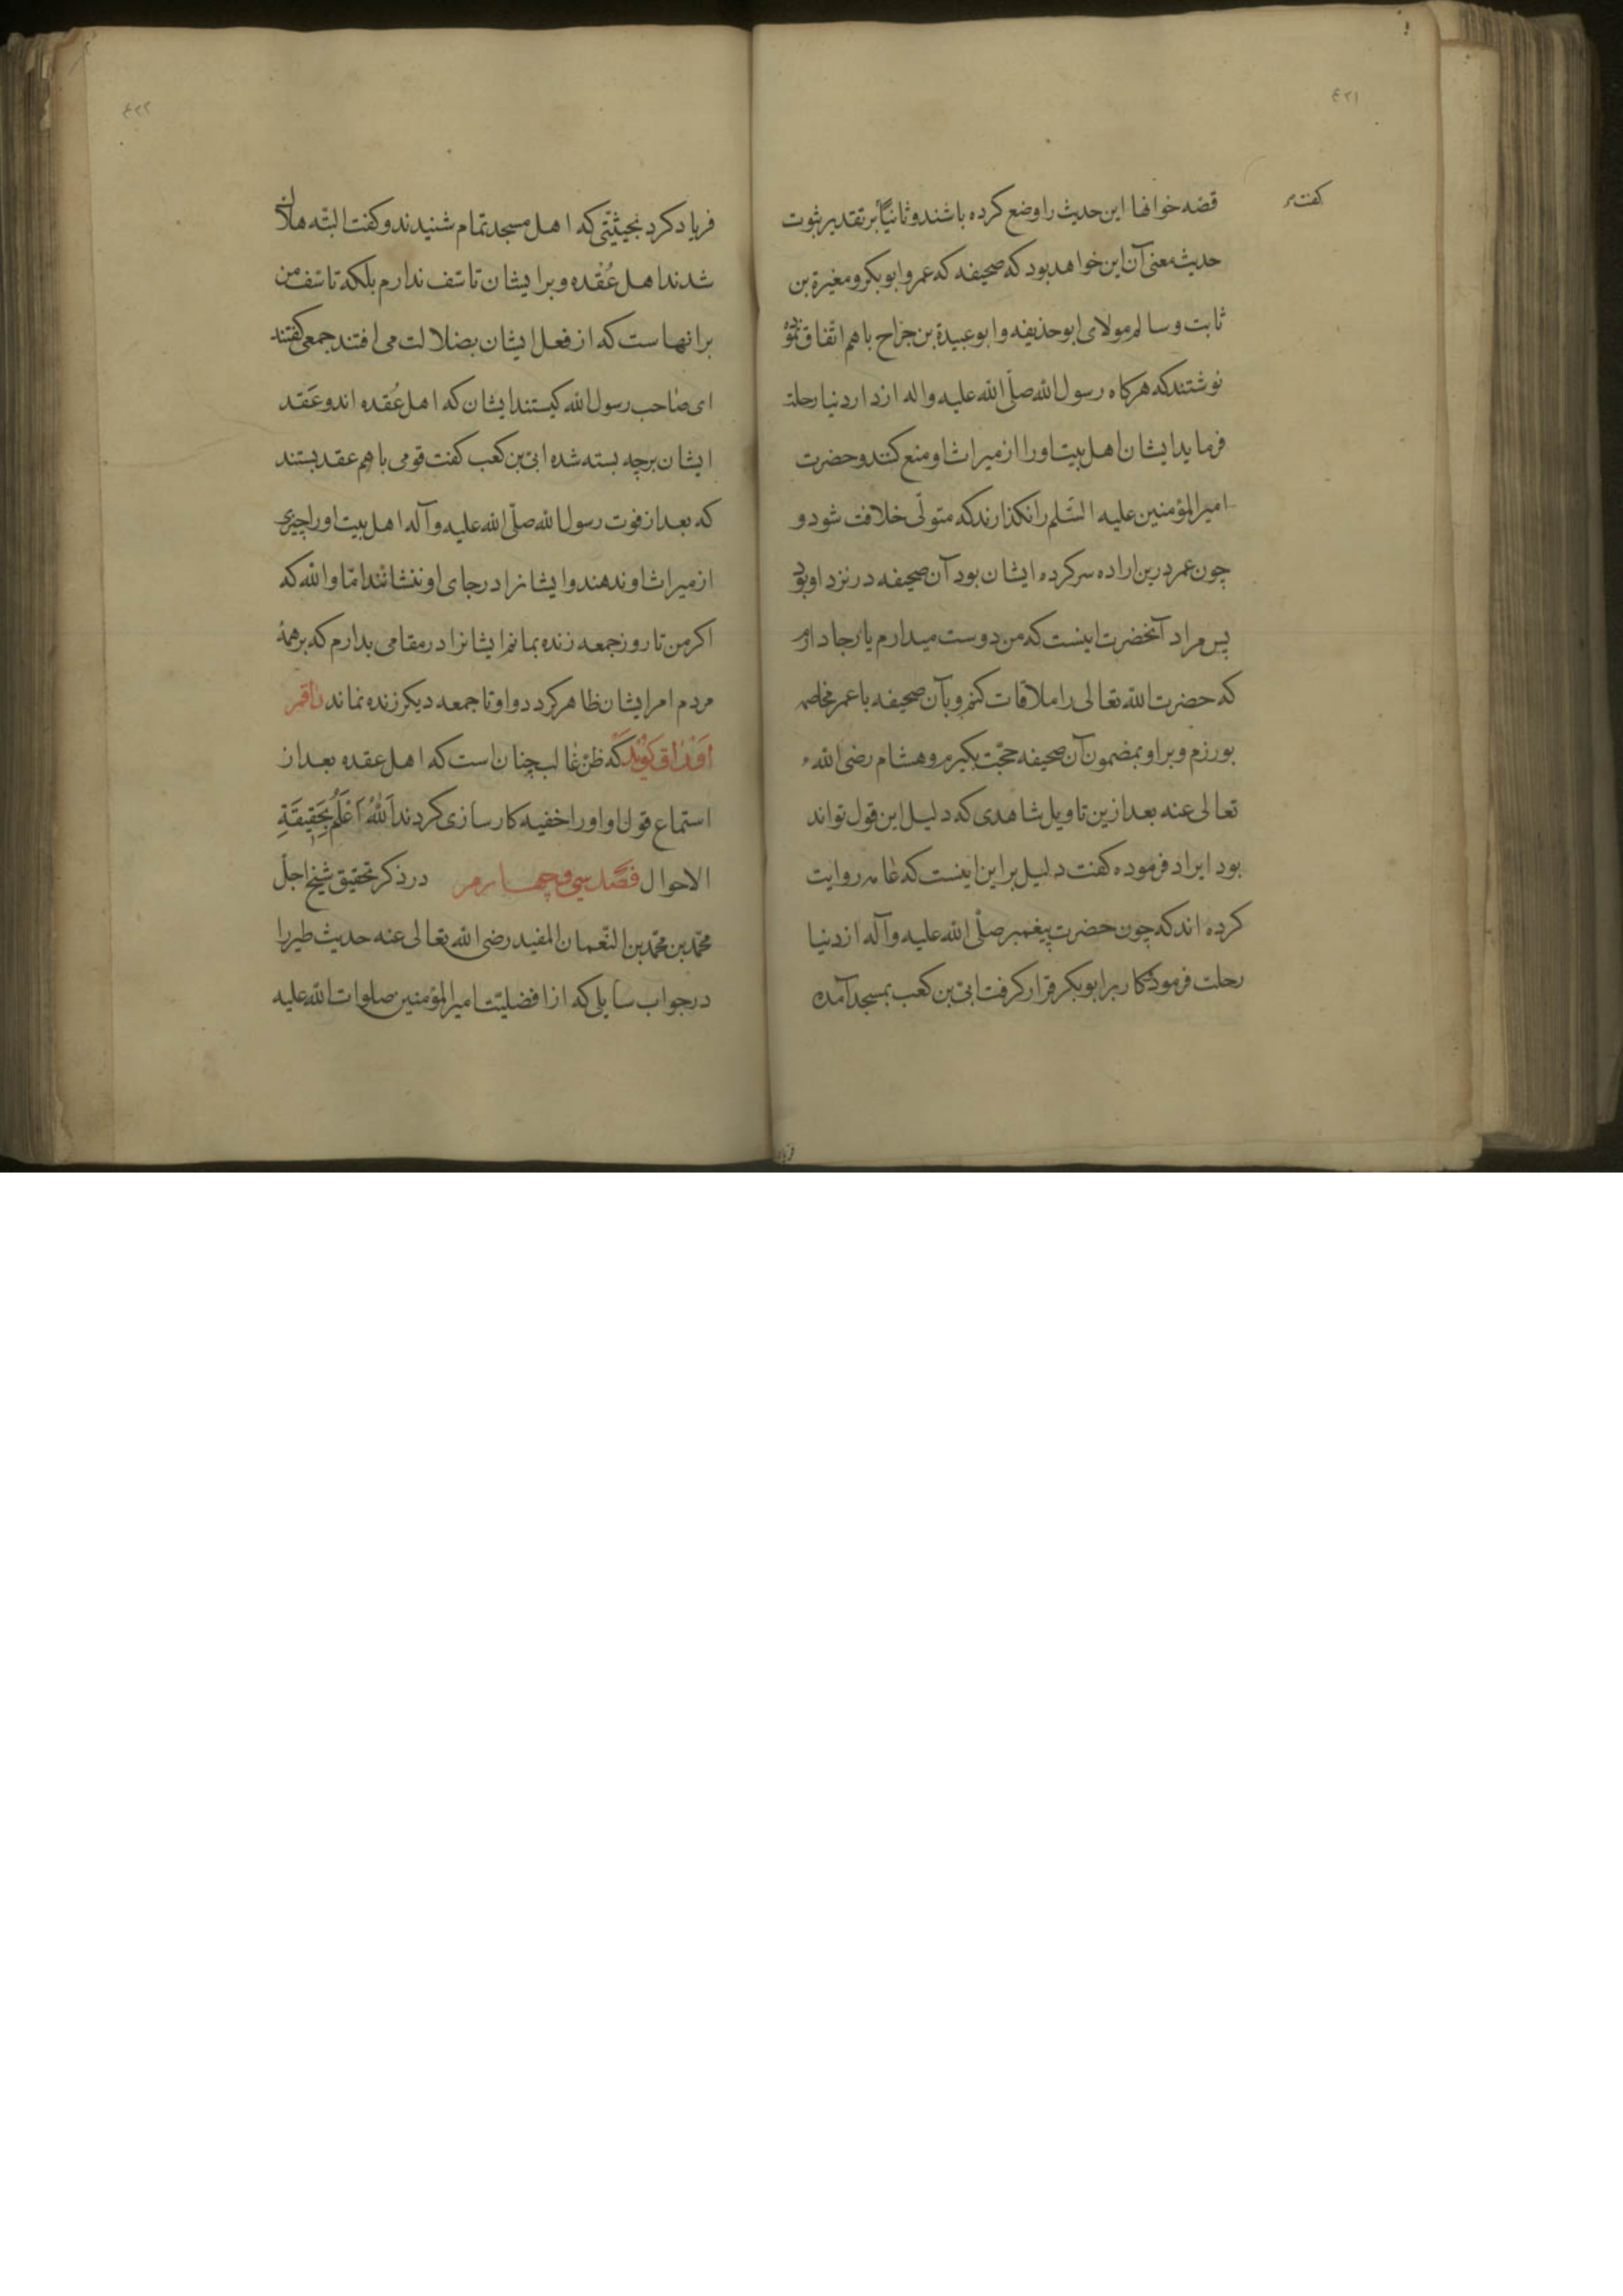 ۴۲۱
گفت مر
قضه خوانها این حدیث را وضع کرده باشند و ثانیاً بر تقدیر ثبوت
حدیث معنی آن این خواهد بود که صحیفه که عمر و ابوبکر و مغیرة بن
ثابت و سالم مولای ابو حذیفه و ابو عبیدة بن جراح باهم اتّفاق نموده
نوشتند که هرکاه رسول الله صلّی الله علیه و اله از دار دنیا رحلت
فرماید ایشان اهل بیت او را از میراث او منع کنند و حضرت
امیر المؤمنین علیه السّلم را نکذارند که متولّی خلافت شود و
چون عمر درین اراده سرکرده ایشان بود آن صحیفه در نزد او بود
پس مراد آنحضرت اینست که من دوست میدارم یا رجا دارم
که حضرت الله تعالی را ملاقات کنم و بآن صحیفه با عمر مخاصمه
بورزم و بر او بمضمون آن صحیفه حجّت بکیرم و هشام رضی الله
تعالی عنه بعد ازین تاویل شاهدی که دلیل این قول تواند
بود ایراد فرموده کفت دلیل بر این اینست که عامه روایت
کرده اند که چون حضرت پیغمبر صلّی الله علیه و آله از دنیا
رحلت فرمود و کار بر ابوبکر قرار کرفت ابیّ بن کعب بمسجد آمده
۴۲۲
فریاد کرد بحیثیّتی که اهل مسجد تمام شنیدند و کفت البتّه هلاک
شدند اهل عُقده و بر ایشان تاسّف ندارم بلکه تاسّف من
برانهاست که از فعل ایشان بضلالت می افتند جمعی کفتند
ای صاحب رسول الله کیستند ایشان که اهل عُقده اند و عَقد
ایشان برچه بسته شده ابیّ بن کعب کفت قومی باهم عقد بستند
که بعد از فوت رسول الله صلّی الله علیه و آله اهل بیت او را چیزی
از میراث او ندهند و ایشانرا در جای او ننشانند امّا والله که
اکر من تا روز جمعه زنده بمانم ایشانرا در مقامی بدارم که بر همهٔ
مردم امر ایشان ظاهر کردد و او تا جمعه دیکر زنده نماند راقم
اوراق کوید که ظن غالب چنان است که اهل عقده بعد از
استماع قول او او را خفیه کارسازی کردند اَللهُ اَعْلَمُ بِحَقِیقَةِ
الاحوال فصل سی و چهارم در ذکر تحقیق شیخ اجلّ
محمّد بن محمّد بن النّعمان المفید رضی الله تعالی عنه حدیث طیر را
در جواب سایلی که از افضلیّت امیر المؤمنین صلوات الله علیه